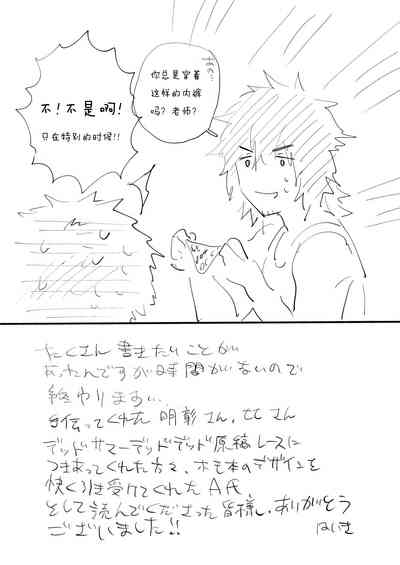 あの…
你总是穿着
这样的内裤
吗？老师？
不！不是啊！
只在特别的时候!!
たくさん 書きたいことが
あったんですが時間がないので
終わります…
手伝ってくれた 明彰さん、セヒさん
デッドサマーデッドデッド原稿レースに
つきあってくれた方々、ホモ本のデザインを
快く引き受けてくれた A氏、
そして読んでくださった皆様、ありがとう
ございました!!
はいき